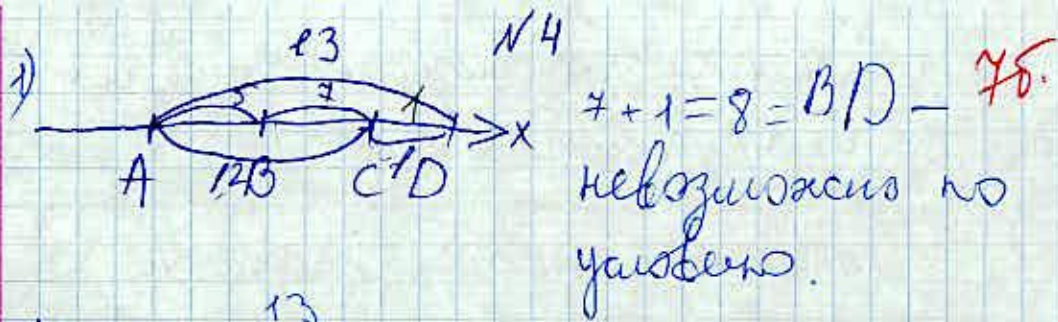 №4
1)
13
5 7 1
A 12 B C 1 D x
7+1=8=BD – 7б.
невозможно по
условию.
13